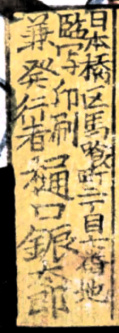 日本橋区馬喰町二丁目七番地
臨写印刷
兼発行者 樋口銀太郎